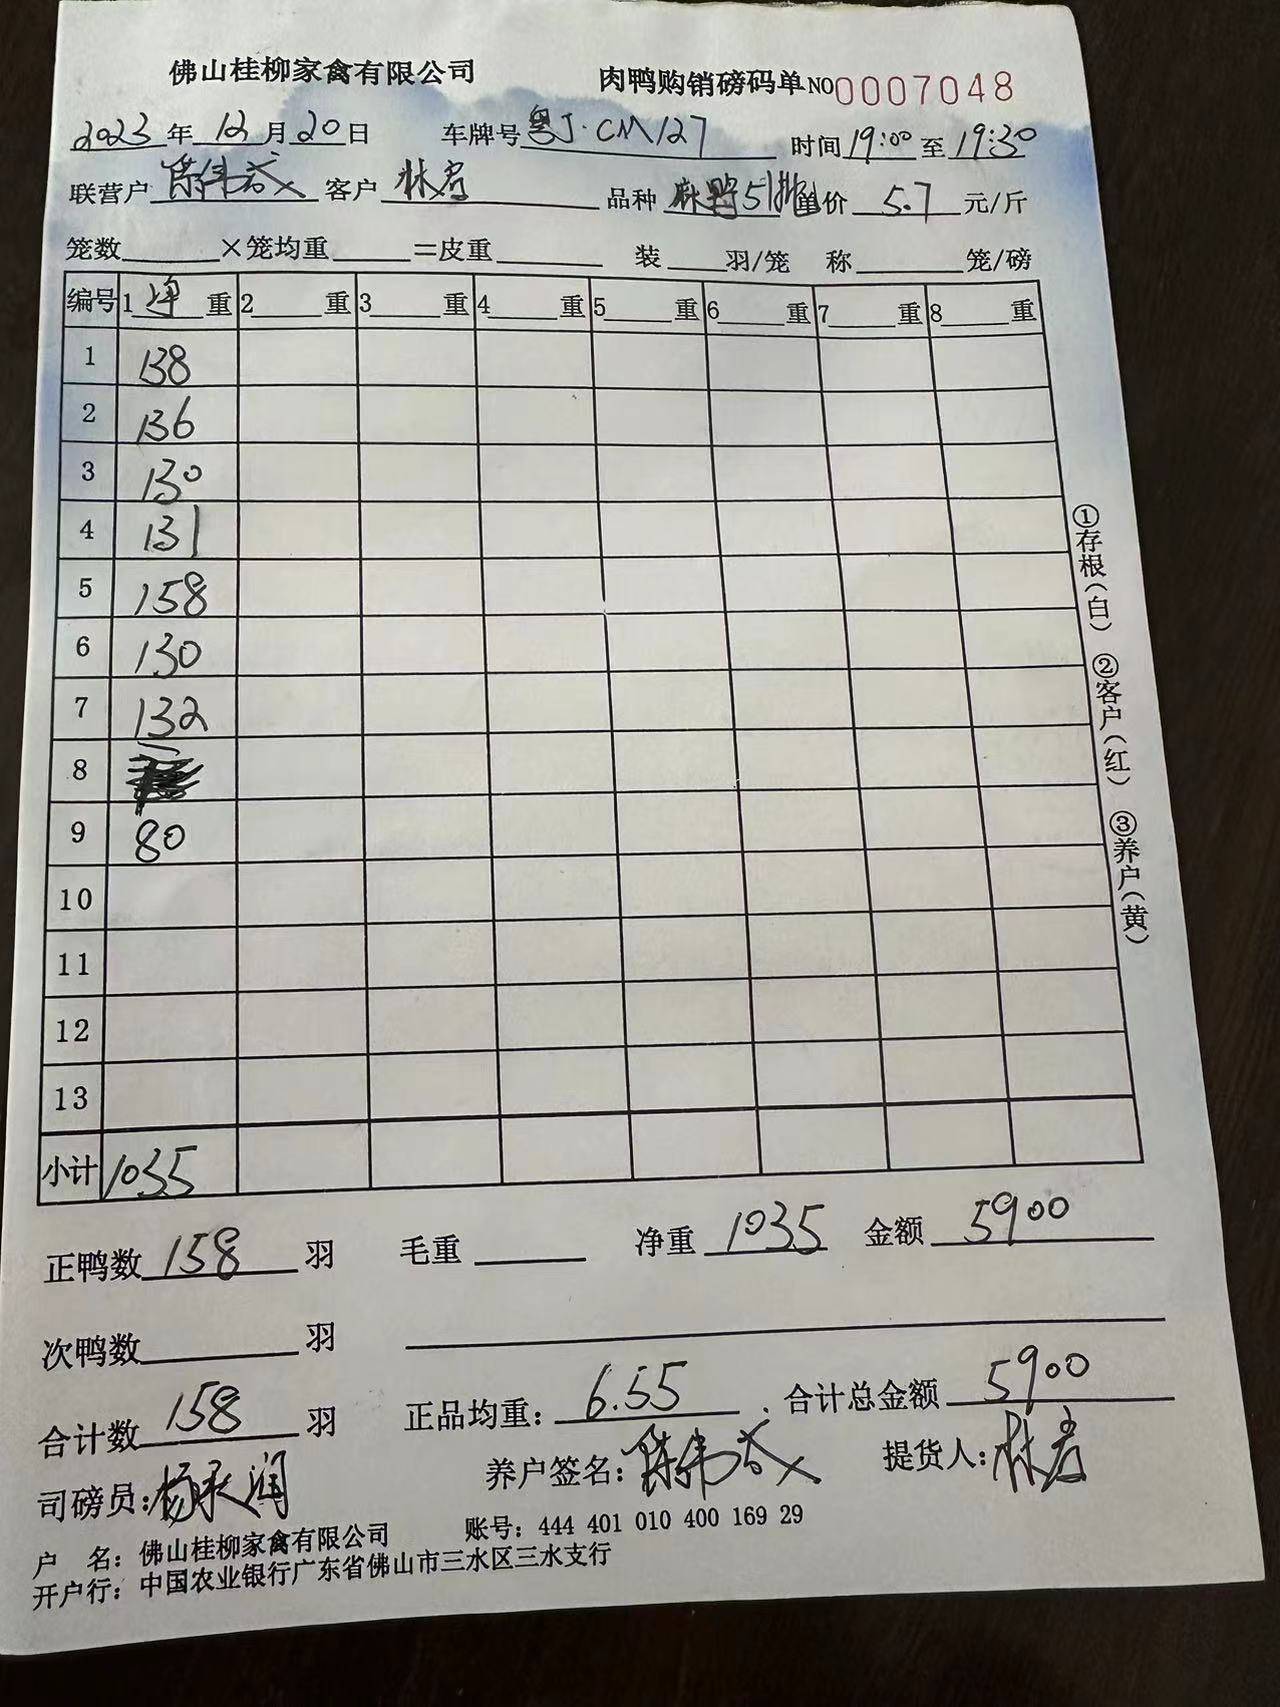 佛山桂柳家禽有限公司 肉鸭购销磅码单 NO0007048
2023年12月20日 车牌号粤J·CM127 时间19:00至19:30
联营户陈伟 客户林 品种麻鸭51 单价5.7元/斤
笼数 ×笼均重 =皮重 装 羽/笼 称 笼/磅
编号 1净重 2 重 3 重 4 重 5 重 6 重 7 重 8 重
1 138
2 136
3 130
4 131
5 158
6 130
7 132
8
9 80
10
11
12
13
小计 1035
①存根(白) ②客户(红) ③养户(黄)
正鸭数158羽 毛重 净重1035 金额5900
次鸭数 羽
合计数158羽 正品均重:6.55 合计总金额5900
司磅员:杨 润 养户签名:陈伟 提货人:林
户 名:佛山桂柳家禽有限公司 账号:444 401 010 400 169 29
开户行:中国农业银行广东省佛山市三水区三水支行